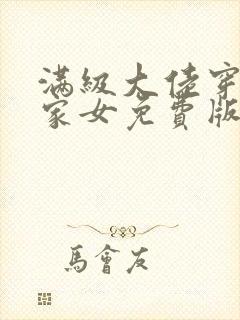 满級大佬穿
家女免費版
馬會友